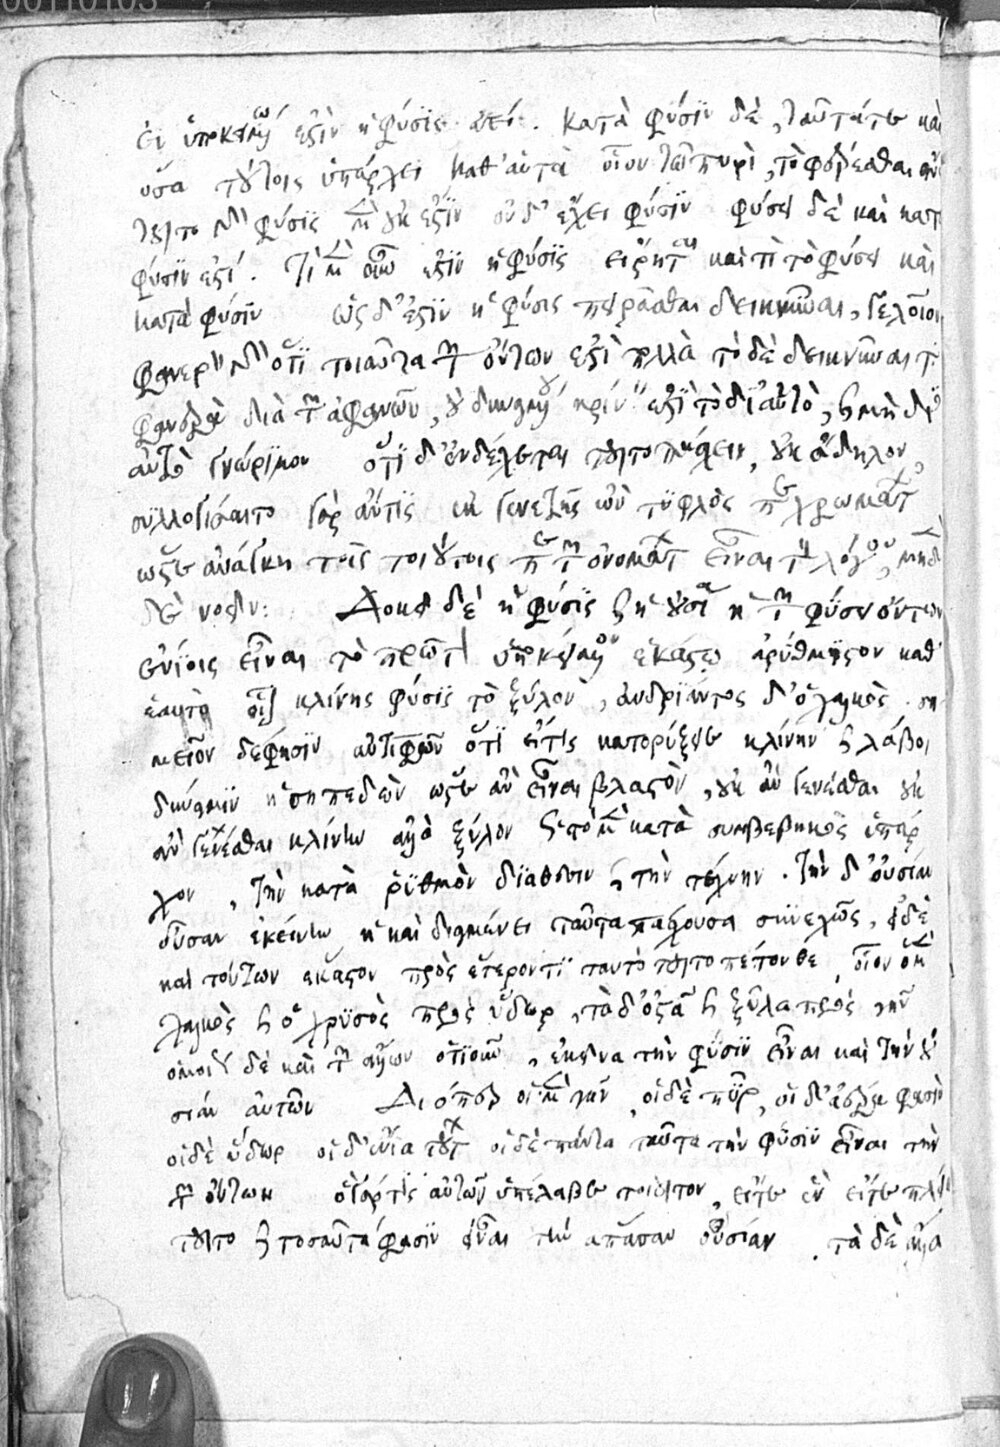 00110103
ἐν ὑποκειμένῳ ἐστὶν ἡ φύσις ἀεί. κατὰ φύσιν δὲ, ταῦτά τε καὶ
ὅσα τούτοις ὑπάρχει καθ' αὑτὰ οἷον τῷ πυρὶ, τὸ φέρεσθαι ἄνω
τοῦτο γὰρ φύσις μὲν οὐκ ἐστὶν οὐδ' ἔχει φύσιν φύσει δὲ καὶ κατὰ
φύσιν ἐστί. τί μὲν οὖν ἐστὶν ἡ φύσις εἴρηται καὶ τί τὸ φύσει καὶ
κατὰ φύσιν ὡς δ' ἐστὶν ἡ φύσις πειρᾶσθαι δεικνύναι, γελοῖον
φανερὸν γὰρ ὅτι τοιαῦτα τῶν ὄντων ἐστὶ πολλὰ τὸ δὲ δεικνύναι τὰ
φανερὰ διὰ τῶν ἀφανῶν, οὐ δυναμένου κρίνειν ἐστὶ τὸ δι' αὑτὸ, καὶ μὴ δι'
αὑτὸ γνώριμον ὅτι δ' ἐνδέχεται τοῦτο πάσχειν, οὐκ ἄδηλον,
συλλογίσαιτο γὰρ ἄν τις ἐκ γενετῆς ὢν τυφλὸς περὶ χρωμάτων
ὥστε ἀνάγκη τοῖς τοιούτοις περὶ τῶν ὀνομάτων εἶναι τὸν λόγον, μηδὲν
δὲ νοεῖν: Δοκεῖ δὲ ἡ φύσις καὶ ἡ οὐσία ἡ τῶν φύσει ὄντων
ἐνίοις εἶναι τὸ πρῶτον ὑποκείμενον ἑκάστῳ ἀρύθμιστον καθ'
ἑαυτὸ οἷον κλίνης φύσις τὸ ξύλον, ἀνδριάντος δ' ὁ χαλκὸς. ση
μεῖον δέ φησιν ἀντιφῶν ὅτι εἴ τις κατορύξειε κλίνην καὶ λάβοι
δύναμιν ἡ σηπεδὼν ὥστε ἀνεῖναι βλαστὸν, οὐκ ἂν γενέσθαι οὐκ
ἂν γενέσθαι κλίνην ἀλλὰ ξύλον καὶ τὸ μὲν κατὰ συμβεβηκὸς ὑπάρ
χον, τὴν κατὰ ῥυθμὸν διάθεσιν καὶ τὴν τέχνην. τὴν δ' οὐσίαν
οὖσαν ἐκείνην ἣ καὶ διαμένει ταῦτα πάσχουσα συνεχῶς, εἰ δὲ
καὶ τούτων ἕκαστον πρὸς ἕτερόν τι ταυτὸ τοῦτο πέπονθε, οἷον ὁ μὲν
χαλκὸς καὶ ὁ χρυσὸς πρὸς ὕδωρ, τὰ δ' ὀστᾶ καὶ ξύλα πρὸς γῆν
ὁμοίως δὲ καὶ τῶν ἄλλων ὁτιοῦν, ἐκεῖνα τὴν φύσιν εἶναι καὶ τὴν οὐ
σίαν αὐτῶν Διόπερ οἱ μὲν γῆν, οἱ δὲ πῦρ, οἱ δ' ἀέρα φασὶν
οἱ δὲ ὕδωρ οἱ δ' ἔνια τούτων οἱ δὲ πάντα ταῦτα τὴν φύσιν εἶναι τὴν
τῶν ὄντων ὃ γάρ τις αὐτῶν ὑπέλαβε τοιοῦτον, εἴτε ἓν εἴτε πλείω
τοῦτο καὶ τοσαῦτά φασιν εἶναι τὴν ἅπασαν οὐσίαν. τὰ δὲ ἄλλα